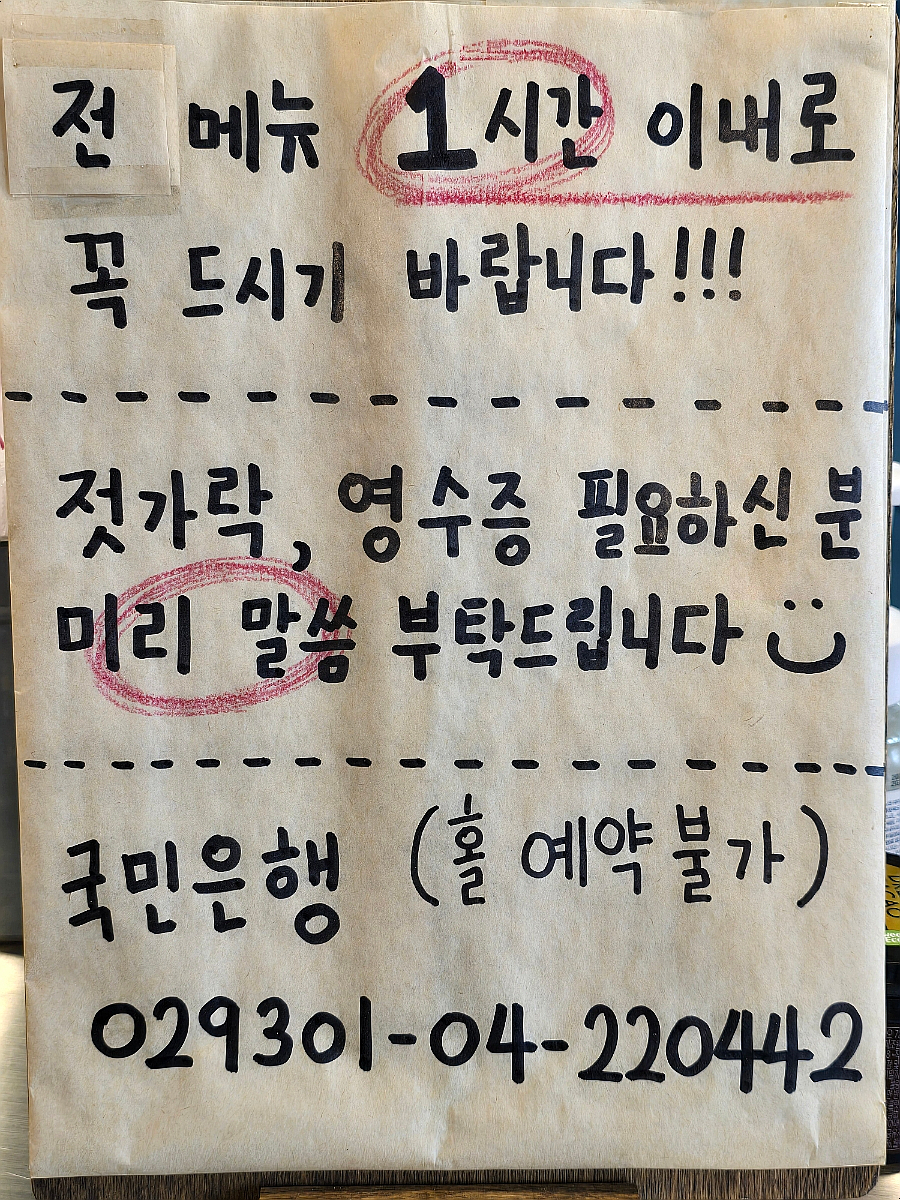 전 메뉴 1시간 이내로
꼭 드시기 바랍니다!!!
젓가락, 영수증 필요하신 분
미리 말씀 부탁드립니다
국민은행 (홀 예약 불가)
029301-04-220442